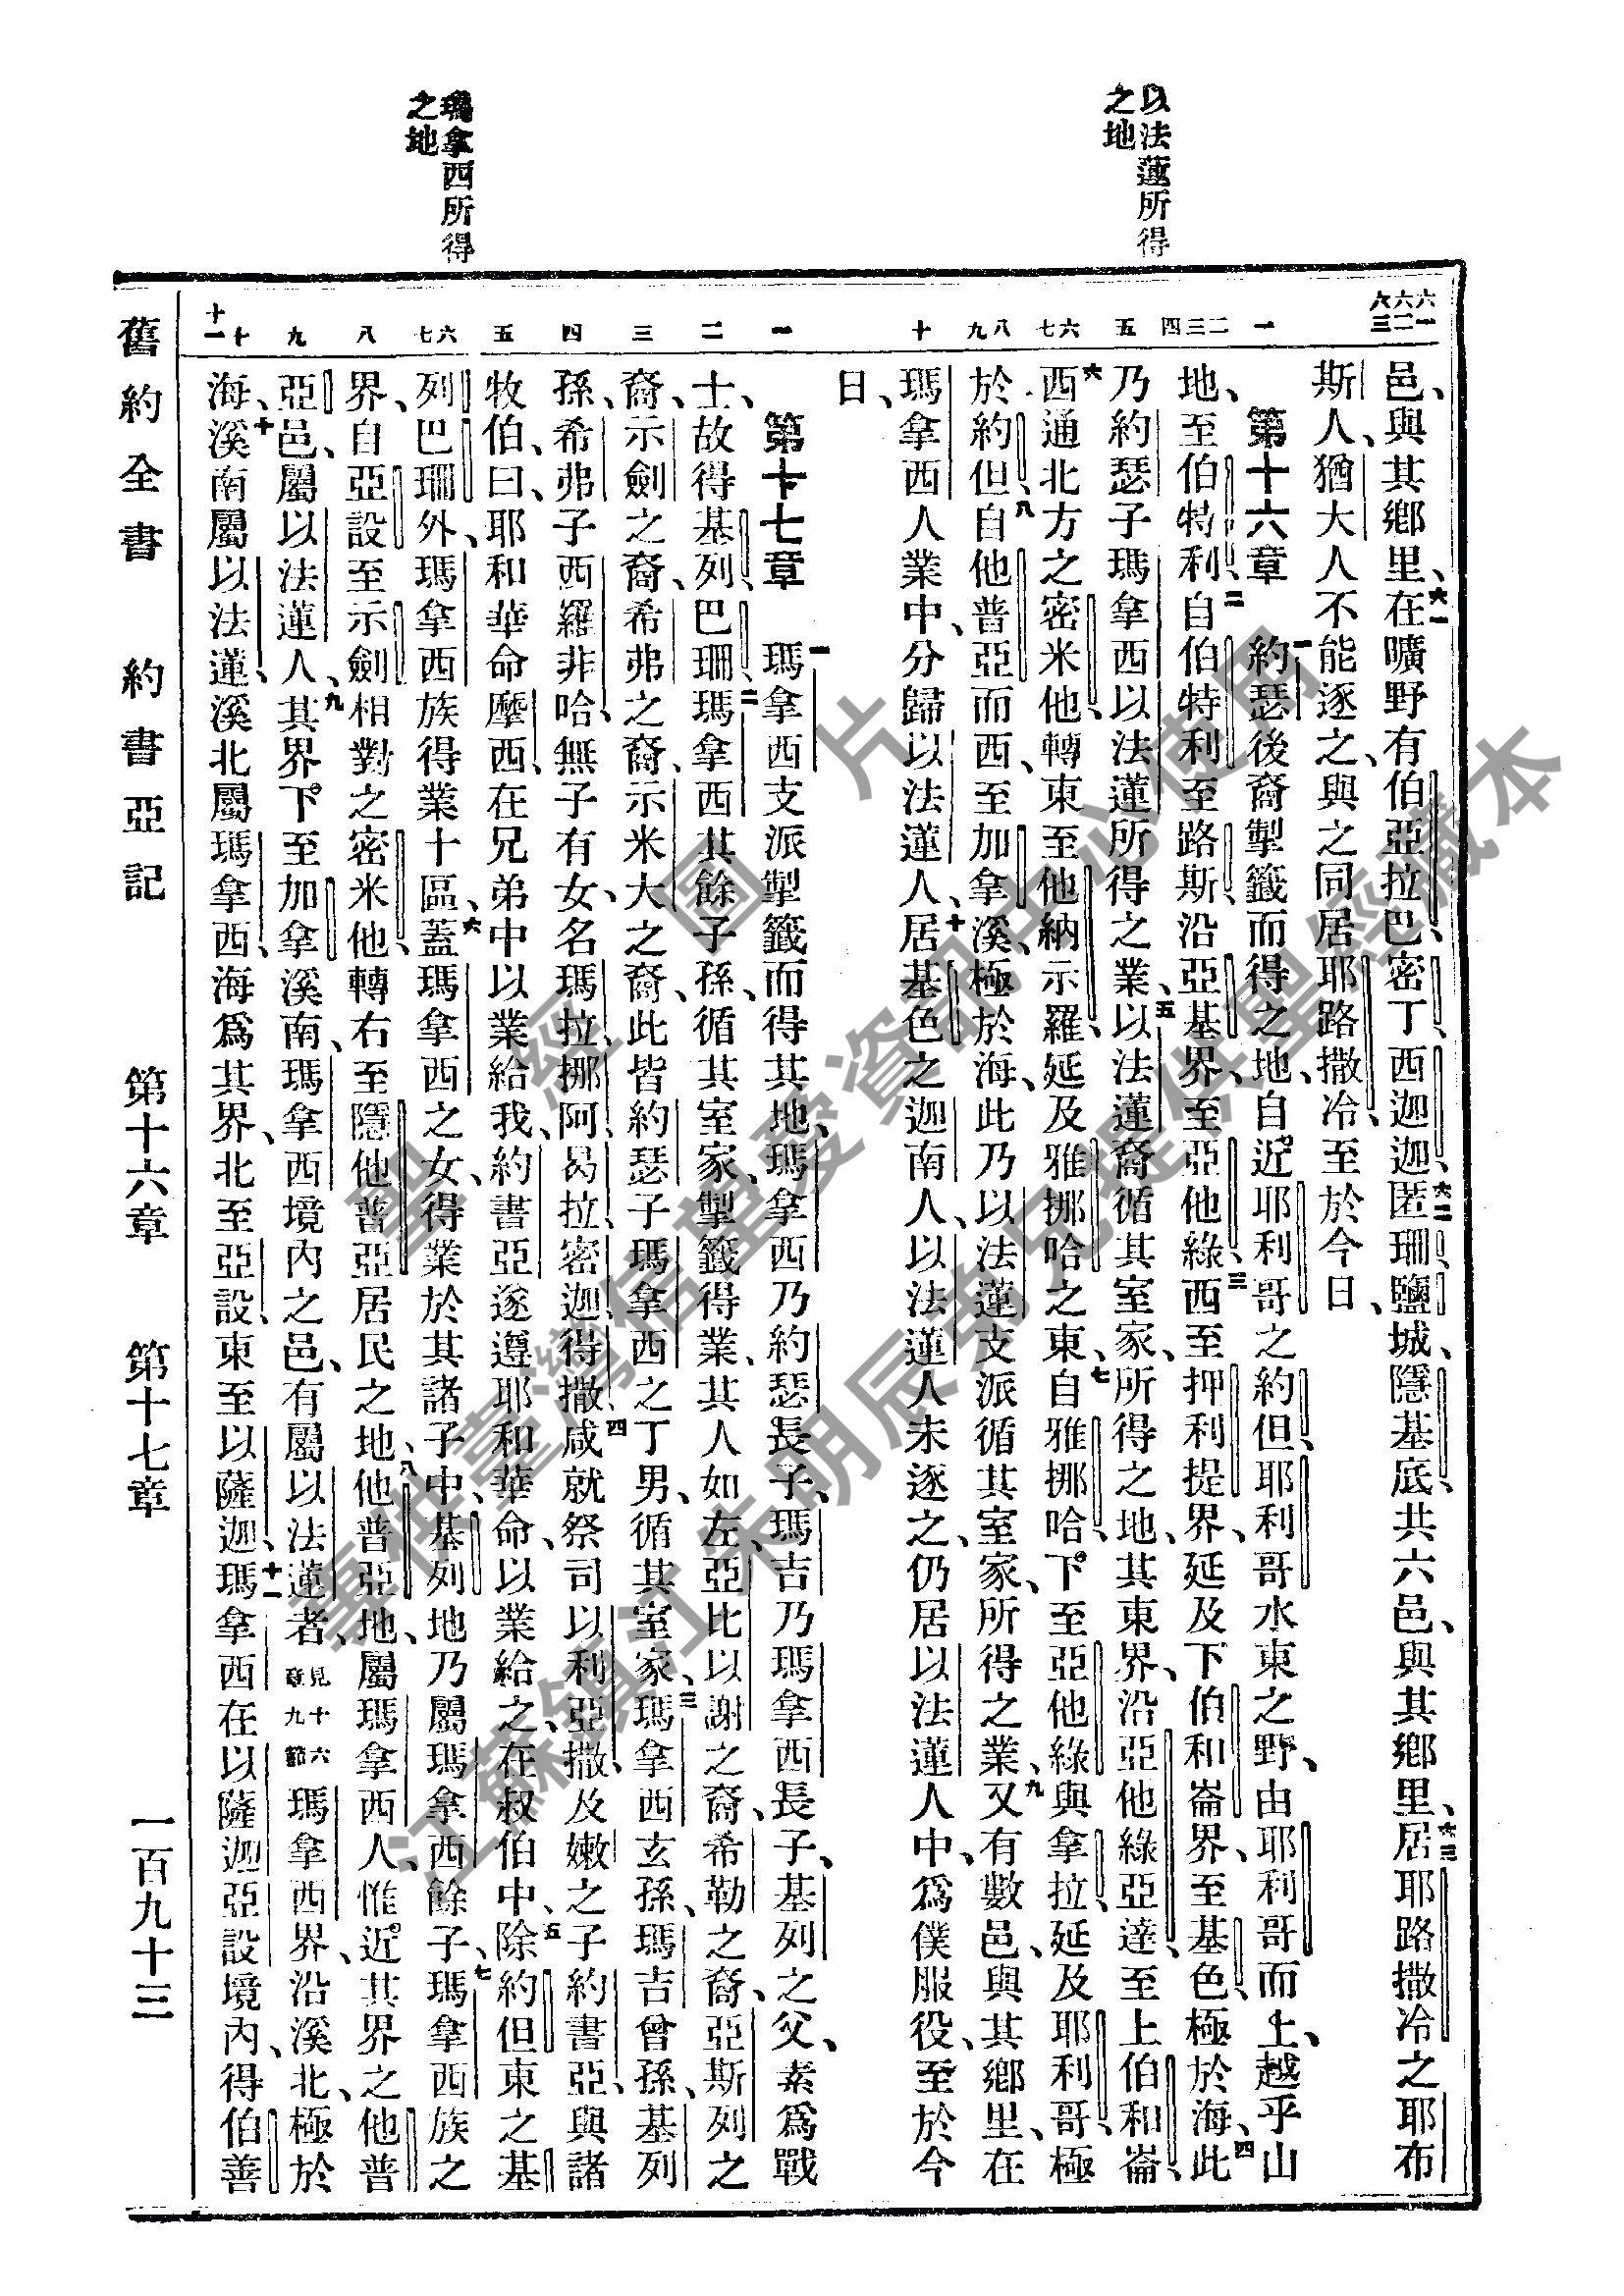 以法蓮所得
之地
瑪拿西所得
之地
六一
六二
六三
一
二
三
四
五
六
七
八
九
十
一
二
三
四
五
六
七
八
九
十
十一
邑、與其鄉里、六一在曠野有伯亞拉巴、密丁、西迦迦、六二匿珊、鹽城、隱基底、共六邑、與其鄉里、六三居耶路撒冷之耶布
斯人、猶大人不能逐之、與之同居耶路撒冷、至於今日、
第十六章 一約瑟後裔掣籤而得之地、自近耶利哥之約但、耶利哥水東之野、由耶利哥而上、越乎山
地、至伯特利、二自伯特利至路斯、沿亞基界、至亞他綠、三西至押利提界、延及下伯和崙界、至基色、極於海、四此
乃約瑟子瑪拿西以法蓮所得之業、五以法蓮裔循其室家、所得之地、其東界、沿亞他綠亞達、至上伯和崙、
六西通北方之密米他、轉東至他納示羅、延及雅挪哈之東、七自雅挪哈、下至亞他綠與拿拉、延及耶利哥、極
於約但、八自他普亞而西、至加拿溪、極於海、此乃以法蓮支派循其室家、所得之業、九又有數邑、與其鄉里、在
瑪拿西人業中、分歸以法蓮人、十居基色之迦南人、以法蓮人未逐之、仍居以法蓮人中、爲僕服役、至於今
日、
第十七章 一瑪拿西支派掣籤而得其地、瑪拿西乃約瑟長子、瑪吉乃瑪拿西長子、基列之父、素爲戰
士、故得基列、巴珊、二瑪拿西其餘子孫、循其室家、掣籤得業、其人如左、亞比以謝之裔、希勒之裔、亞斯列之
裔、示劍之裔、希弗之裔、示米大之裔、此皆約瑟子瑪拿西之丁男、循其室家、三瑪拿西玄孫、瑪吉曾孫、基列
孫、希弗子西羅非哈、無子有女、名瑪拉、挪阿、曷拉、密迦、得撒、四咸就祭司以利亞撒、及嫩之子約書亞、與諸
牧伯、曰、耶和華命摩西、在兄弟中以業給我、約書亞遂遵耶和華命、以業給之、在叔伯中、五除約但東之基
列巴珊外、瑪拿西族得業十區、六蓋瑪拿西之女、得業於其諸子中、基列地乃屬瑪拿西餘子、七瑪拿西族之
界、自亞設至示劍相對之密米他、轉右至隱他普亞居民之地、八他普亞地、屬瑪拿西人、惟近其界之他普
亞邑、屬以法蓮人、九其界下至加拿溪南、瑪拿西境內之邑、有屬以法蓮者、見十六章九節瑪拿西界、沿溪北、極於
海、十溪南屬以法蓮、溪北屬瑪拿西、海爲其界、北至亞設、東至以薩迦、十一瑪拿西在以薩迦亞設境內、得伯善
舊約全書 約書亞記 第十六章 第十七章 一百九十三
聖經圖片
臺灣信望愛資訊中心使用
江蘇鎮江朱明辰弟兄提供聖經藏本